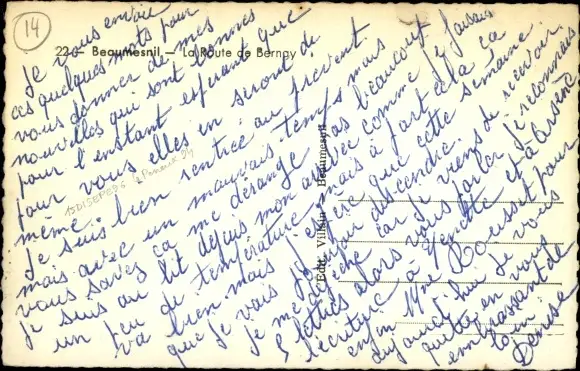 14
22 - Beaumesnil. - La Route de Bernay
Je vous envoie
ces quelques mots pour
vous donner de mes
nouvelles qui sont bonnes
pour l'instant esperant que
pour vous elles en seront de
même.
Je suis bien rentrée au prevent.
mais avec un mauvais temps mais
vous savez ça me dérange pas beaucoup
Je suis au lit depuis mon arrivée comme je faisais
un peu de température mais à part cela ça
va bien mais
que je vais descendre. cette semaine
Je me car je viens de recevoir
5 lettres alors vous parler je reconnais
l'écriture à Yendte et à Arsène
enfin Mme Rousset pour
aujourd'hui Je vous
quitte en vous
embrassant de
Denise
Edit. Villain Beaumesnil